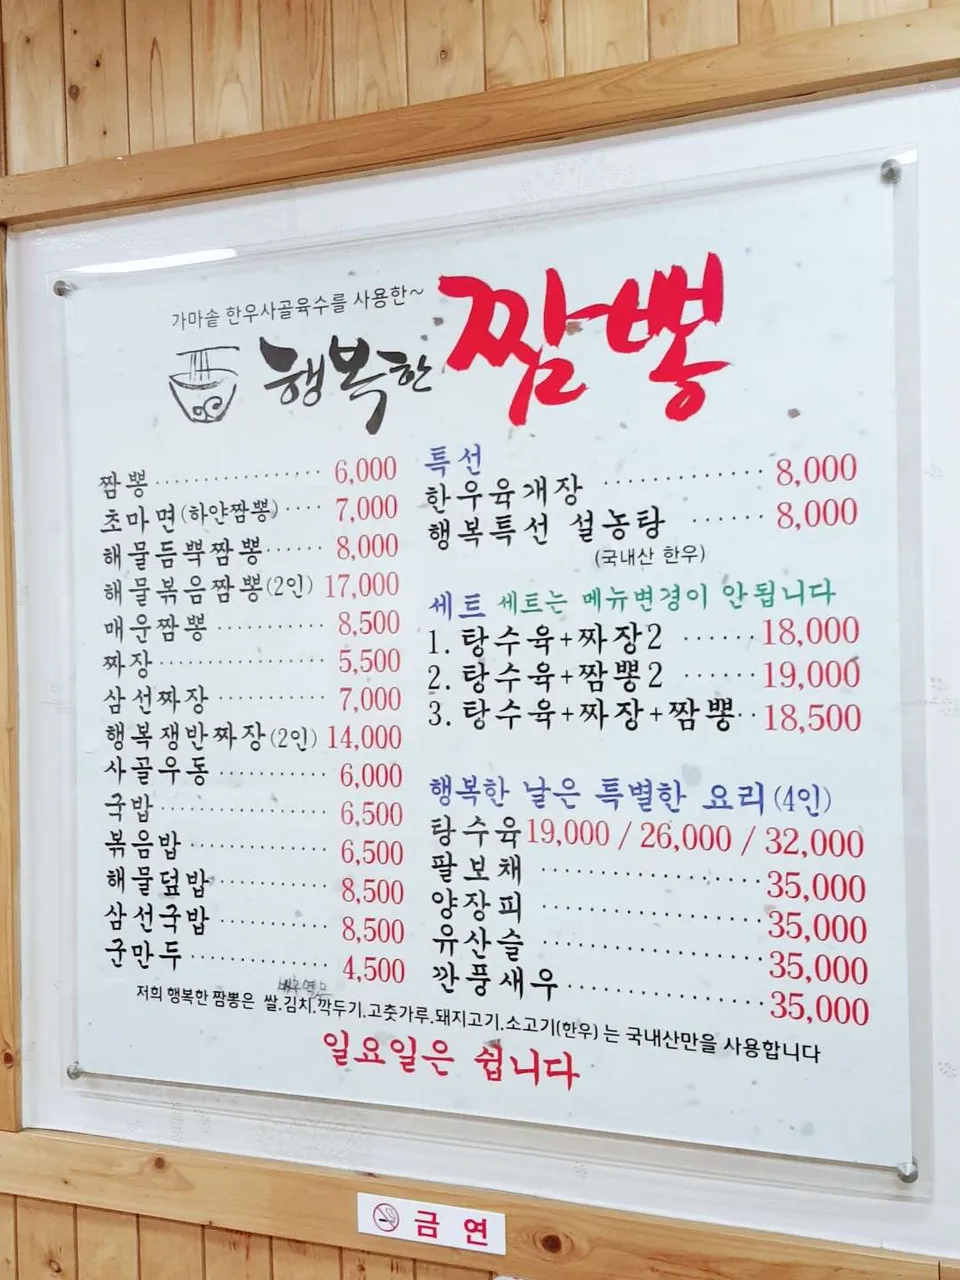 가마솥 한우사골육수를 사용한~
행복한 짬뽕
짬뽕 6,000
초마면(하얀짬뽕) 7,000
해물듬뿍짬뽕 8,000
해물볶음짬뽕(2인) 17,000
매운짬뽕 8,500
짜장 5,500
삼선짜장 7,000
행복쟁반짜장(2인) 14,000
사골우동 6,000
국밥 6,500
볶음밥 6,500
해물덮밥 8,500
삼선국밥 8,500
군만두 4,500
특선
한우육개장 8,000
행복특선 설농탕 8,000
(국내산 한우)
세트 세트는 메뉴변경이 안됩니다
1. 탕수육+짜장2 18,000
2. 탕수육+짬뽕2 19,000
3. 탕수육+짜장+짬뽕 18,500
행복한 날은 특별한 요리(4인)
탕수육 19,000 / 26,000 / 32,000
팔보채 35,000
양장피 35,000
유산슬 35,000
깐풍새우 35,000
저희 행복한 짬뽕은 쌀.김치.깍두기.고춧가루.돼지고기.소고기(한우)는 국내산만을 사용합니다
일요일은 쉽니다
금연